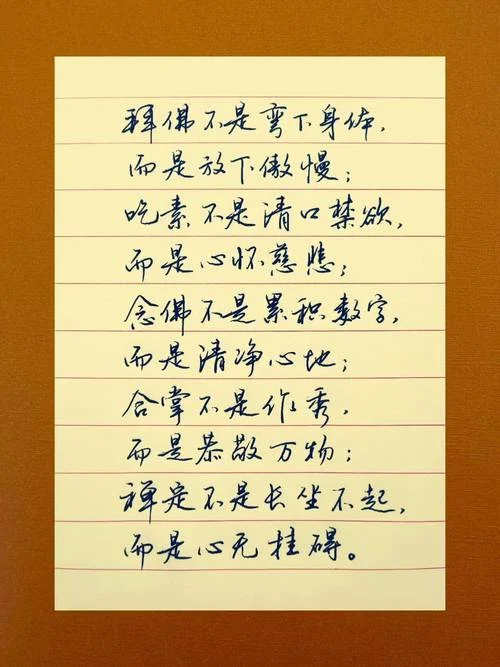 拜佛不是弯下身体,
而是放下傲慢;
吃素不是清口禁欲,
而是心怀慈悲;
念佛不是累积数字,
而是清净心地;
合掌不是作秀,
而是恭敬万物;
禅定不是长坐不起,
而是心无挂碍。